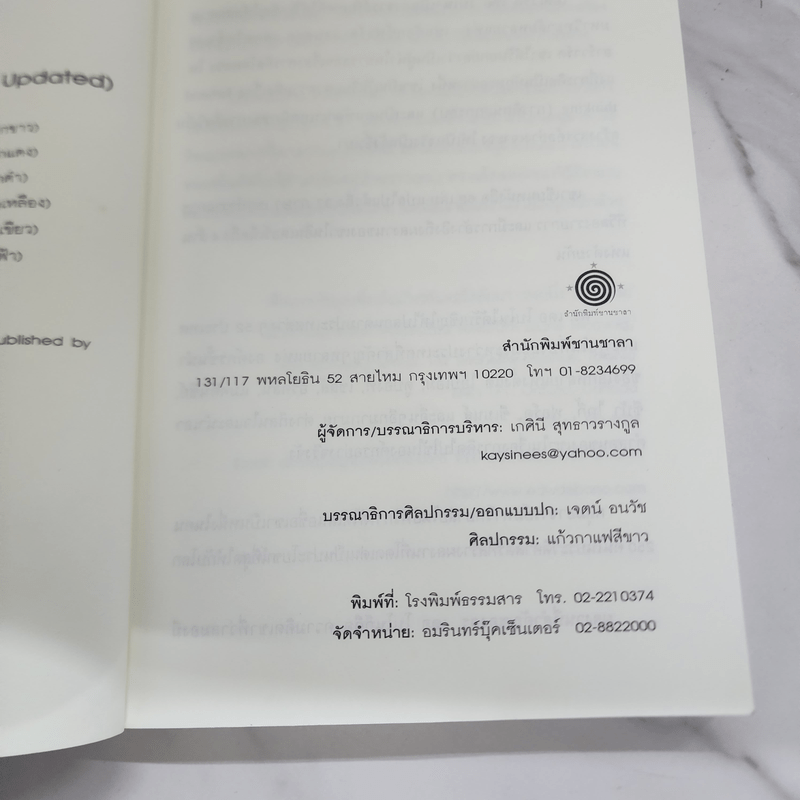 Updated)
กขาว)
กแดง)
กดำ)
กเหลือง)
กเขียว)
กฟ้า)
ublished by
สำนักพิมพ์ชานชาลา
สำนักพิมพ์ชานชาลา
131/117 พหลโยธิน 52 สายไหม กรุงเทพฯ 10220 โทฯ 01-8234699
ผู้จัดการ/บรรณาธิการบริหาร: เกศินี สุทธาวรางกูล
kaysinees@yahoo.com
บรรณาธิการศิลปกรรม/ออกแบบปก: เจตน์ อนวัช
ศิลปกรรม: แก้วกาแฟสีขาว
พิมพ์ที่: โรงพิมพ์ธรรมสาร โทร. 02-2210374
จัดจำหน่าย: อมรินทร์บุ๊คเซ็นเตอร์ 02-8822000